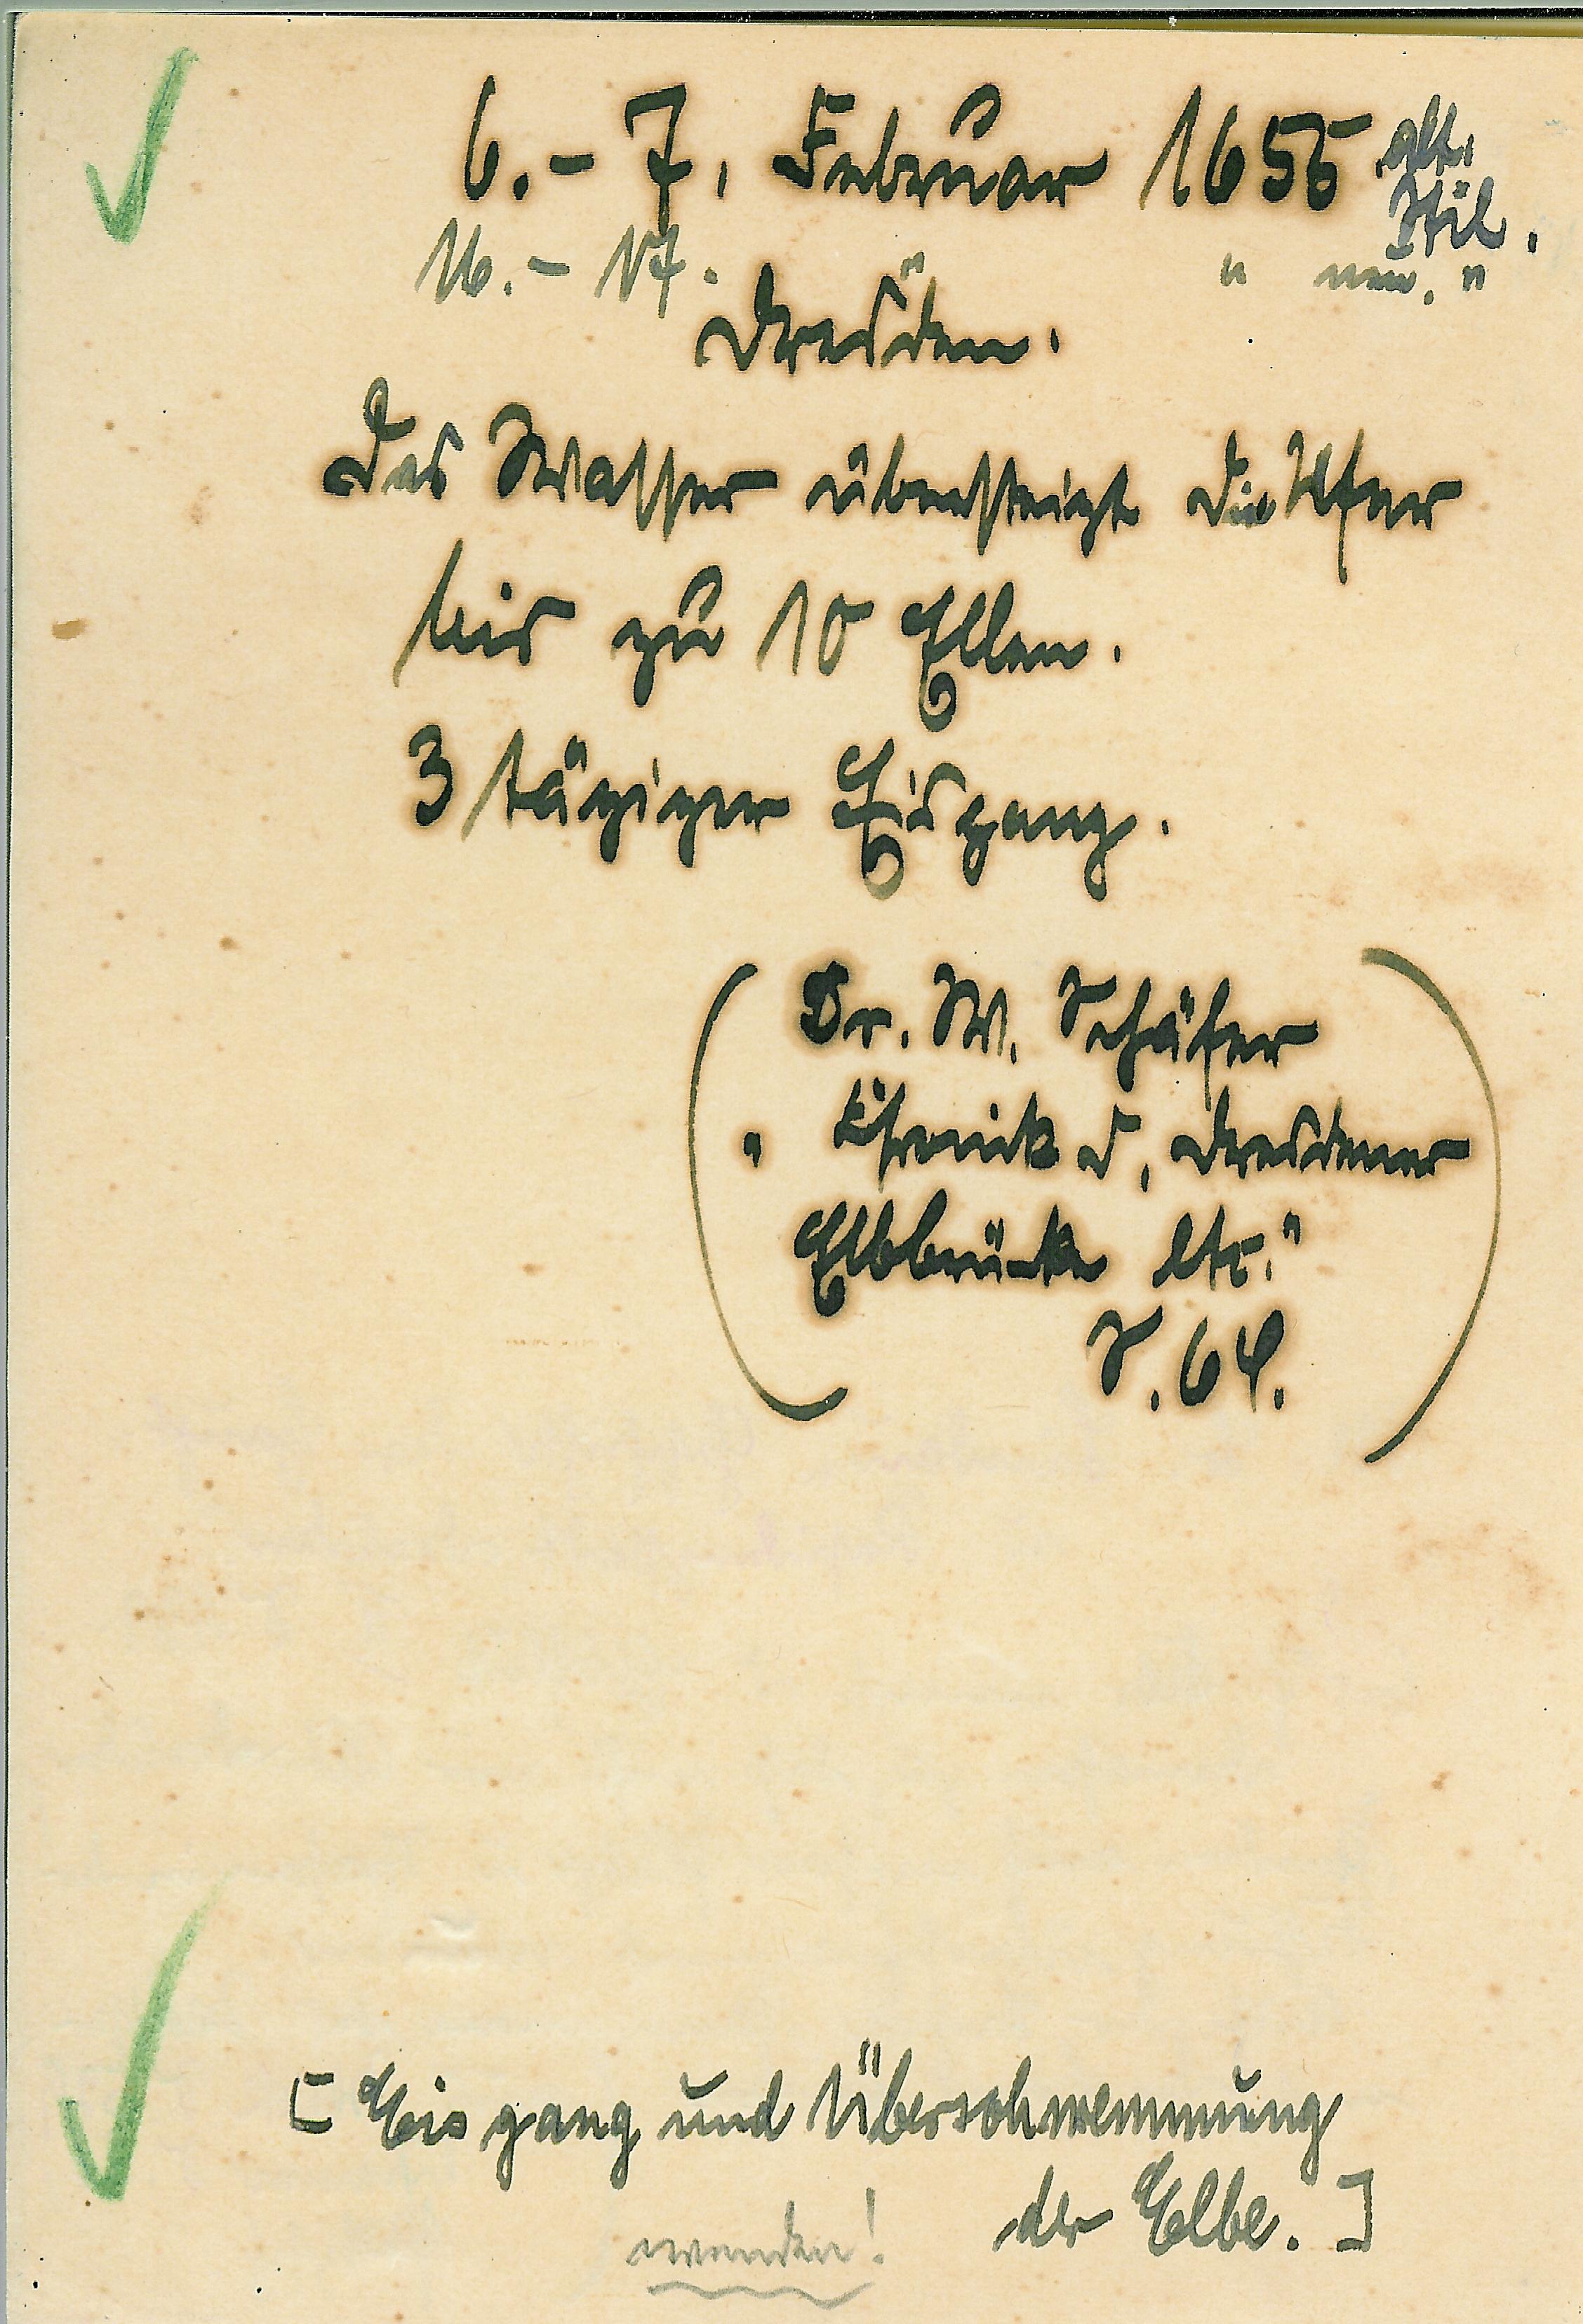 6.- 7. Februar 1655 alt.
Stil.
16.- 17. " " neu. "
Dresden.
Das Wasser übersteigt die Ufer
bis zu 10 Ellen.
3 tägiger Eisgang.
(Dr. W. Schäfer
" Chronik d. Dresdener
Elbbrücke etc."
S. 64.)
[Eisgang und Überschwemmung
der Elbe.]
wenden!